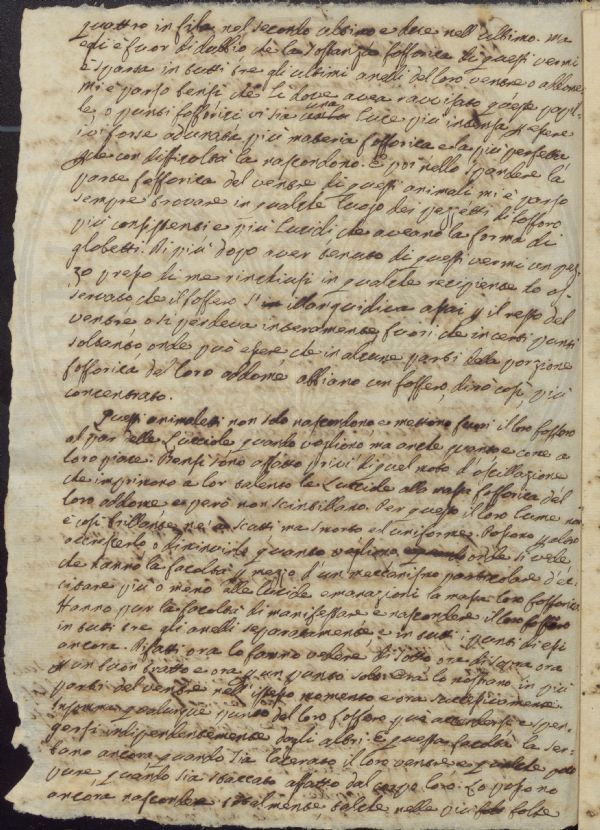 quattro in fila nel secondo ultimo e due nell'ultimo. Ma
egli è fuor di dubbio che la sostanza fosforica di questi vermi
è sparsa in tutti tre gli ultimi anelli del loro ventre o addome
mi è parso bensì che lì dove avea ravvisato queste
le o punti fosforici vi sia una luce più intensa p essere
ivi forse adunata più materia fosforica e la più perfetta
che con difficoltà la nascondono. E poi nello spandere la
parte fosforica del ventre di questi animali mi è parso
sempre trovare in qualche luogo dei pezzetti di fosforo
più consistenti e più lucidi che aveano la forma di
globetti. Di più dopo aver tenuto di questi vermi un pez-
zo presso di me rinchiusi in qualche recipiente ho os-
servato che il fosforo s'illanguidiva assai p il resto del
ventre o si perdeva interamente fuori che in certi punti
soltanto onde può essere che in alcune parti della porzione
fosforica del loro addome abbiano un fosforo, dirò così, più
concentrato.
Questi animaletti non solo nascondono e mettono fuori il loro fosforo
al par delle Lucciole quando vogliono ma anche quanto e come a
loro piace. Bensì sono affatto privi di quel moto d'oscillazione
che imprimono a lor talento le Lucciole alla massa fosforica del
loro addome e però non scintillano. Per questo il loro lume non
è così brillante nè a scatti ma smorto ed uniforme. Possono
accrescerlo o diminuirlo quanto vogliono onde si vede
che hanno la facoltà p mezzo d'un meccanismo particolare d'ec-
citare più o meno alle lucide emanazioni la massa loro fosforica
Hanno pur la facoltà di manifestare e nascondere il loro fosforo
in tutti tre gli anelli separatamente e in tutti i punti di essi
ancora. Difatti ora lo fanno vedere di sotto ora di sopra ora
p un buon tratto e ora p un punto solo. Ora lo mostrano in più
parti del ventre nell'istesso momento e ora successivamente.
Insomma qualunque punto del loro fosforo può accendersi e spen-
gersi indipendentemente dagli altri. E questa facoltà la ser-
bano ancora quando sia lacerato il loro ventre e
pure quando sia staccato affatto dal corpo loro. Lo possono
ancora nascondere totalmente, talchè nelle più folte